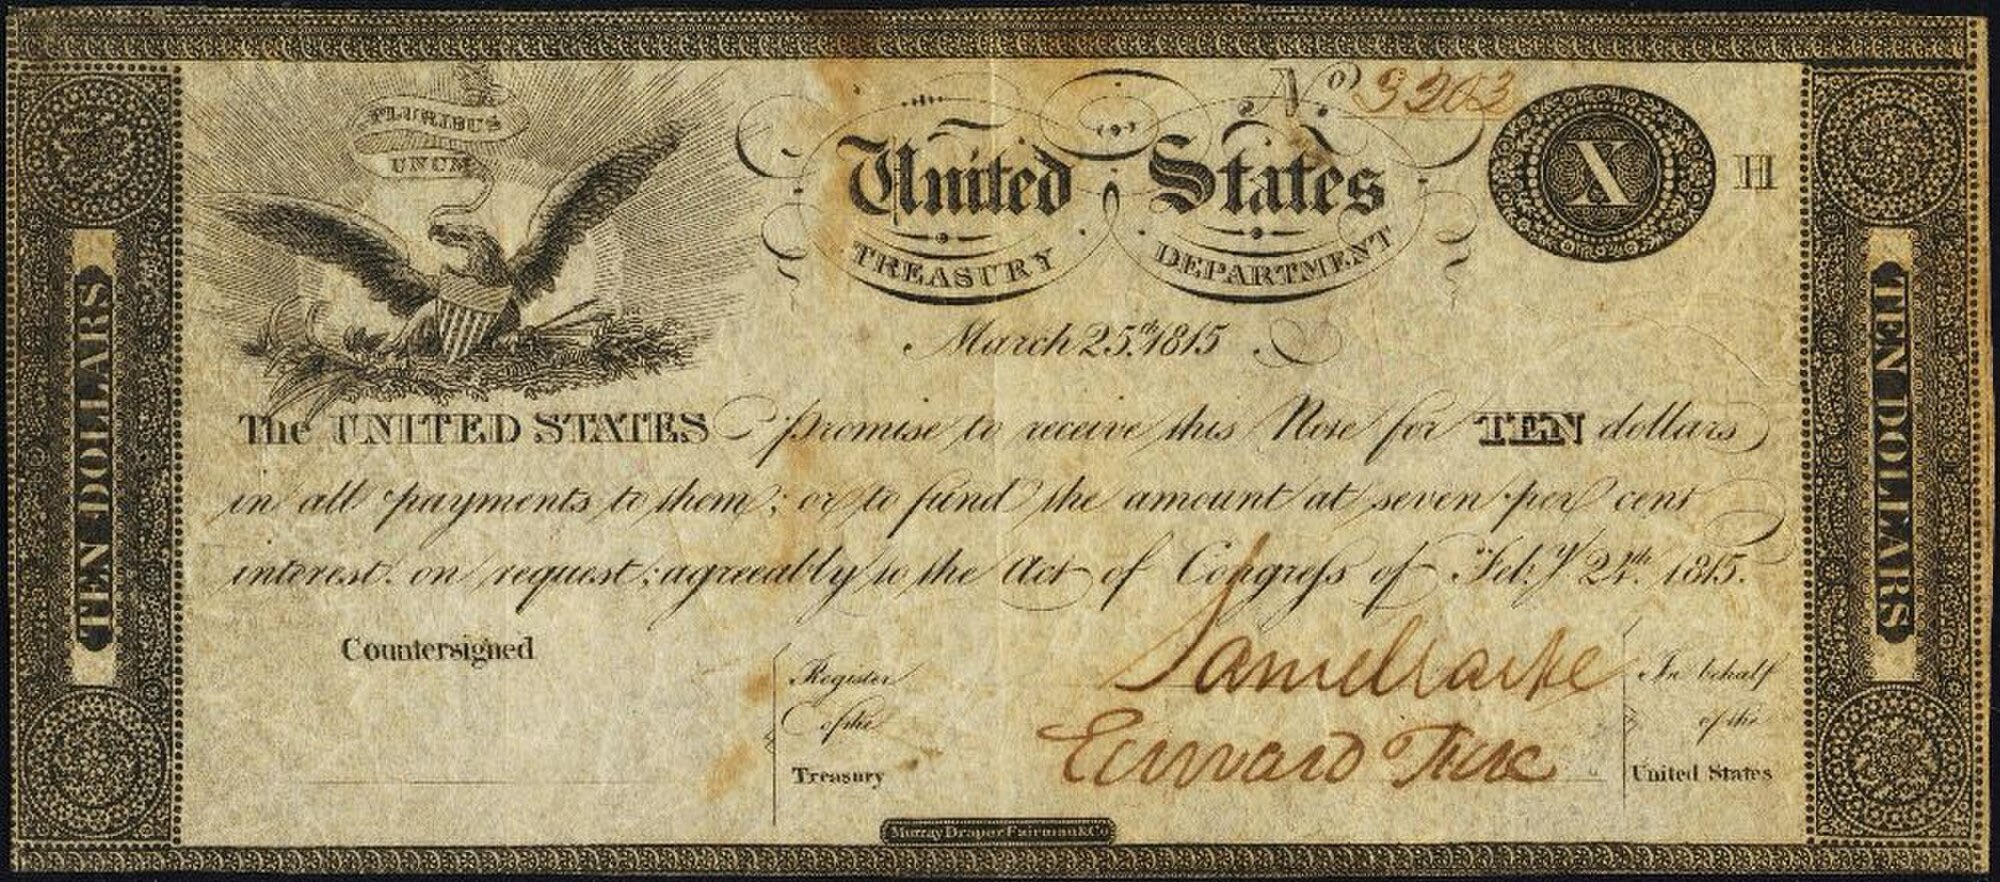 E PLURIBUS
UNUM
No 3203
United States
X
H
TREASURY DEPARTMENT
March 25th. 1815
The UNITED STATES promise to receive this Note for TEN dollars
in all payments to them; or to fund the amount at seven per cent
interest, on request; agreeably to the Act of Congress of Feb.y 24th. 1815.
TEN DOLLARS
TEN DOLLARS
Countersigned
Register
of the
Treasury
Saml Clarke
Edward Fox
In behalf
of the
United States
Murray Draper Fairman & Co